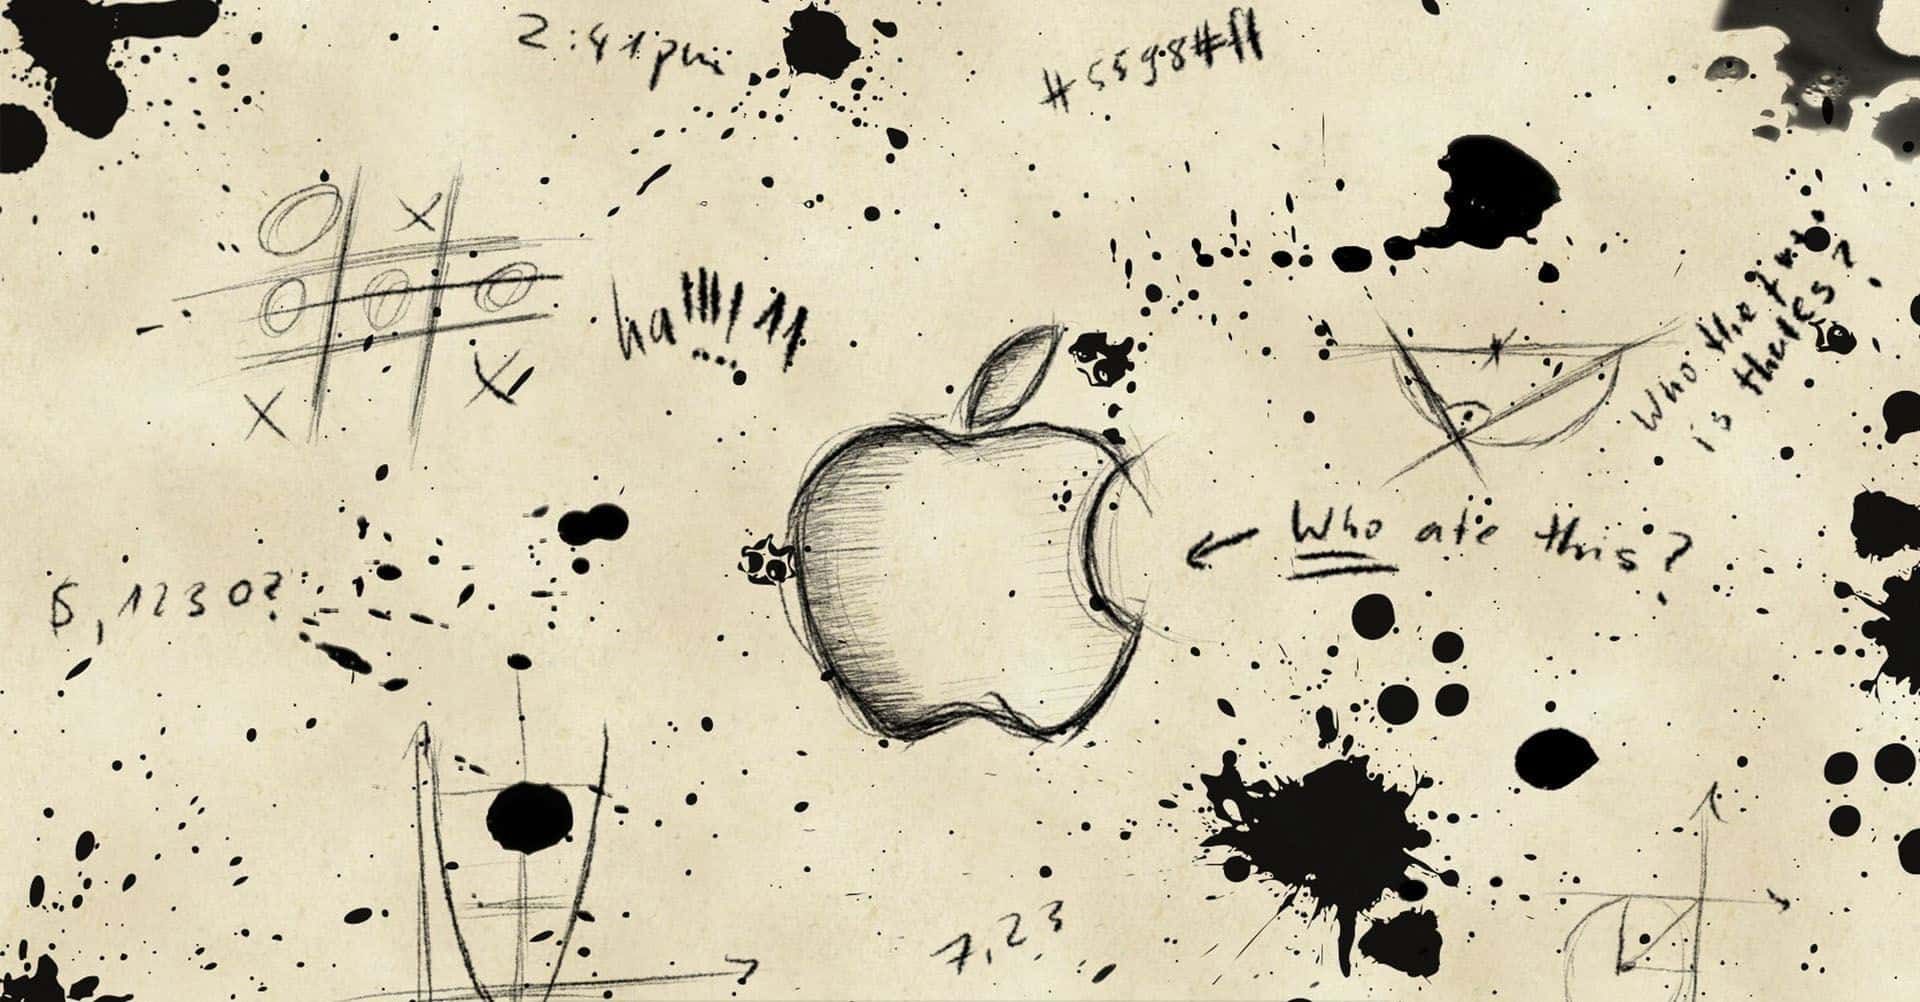 2:41pm
#5598##
O X
O O O
X X
ha!!!! 11
Who the
is theles?
Who ate this?
$,1230?
7,23